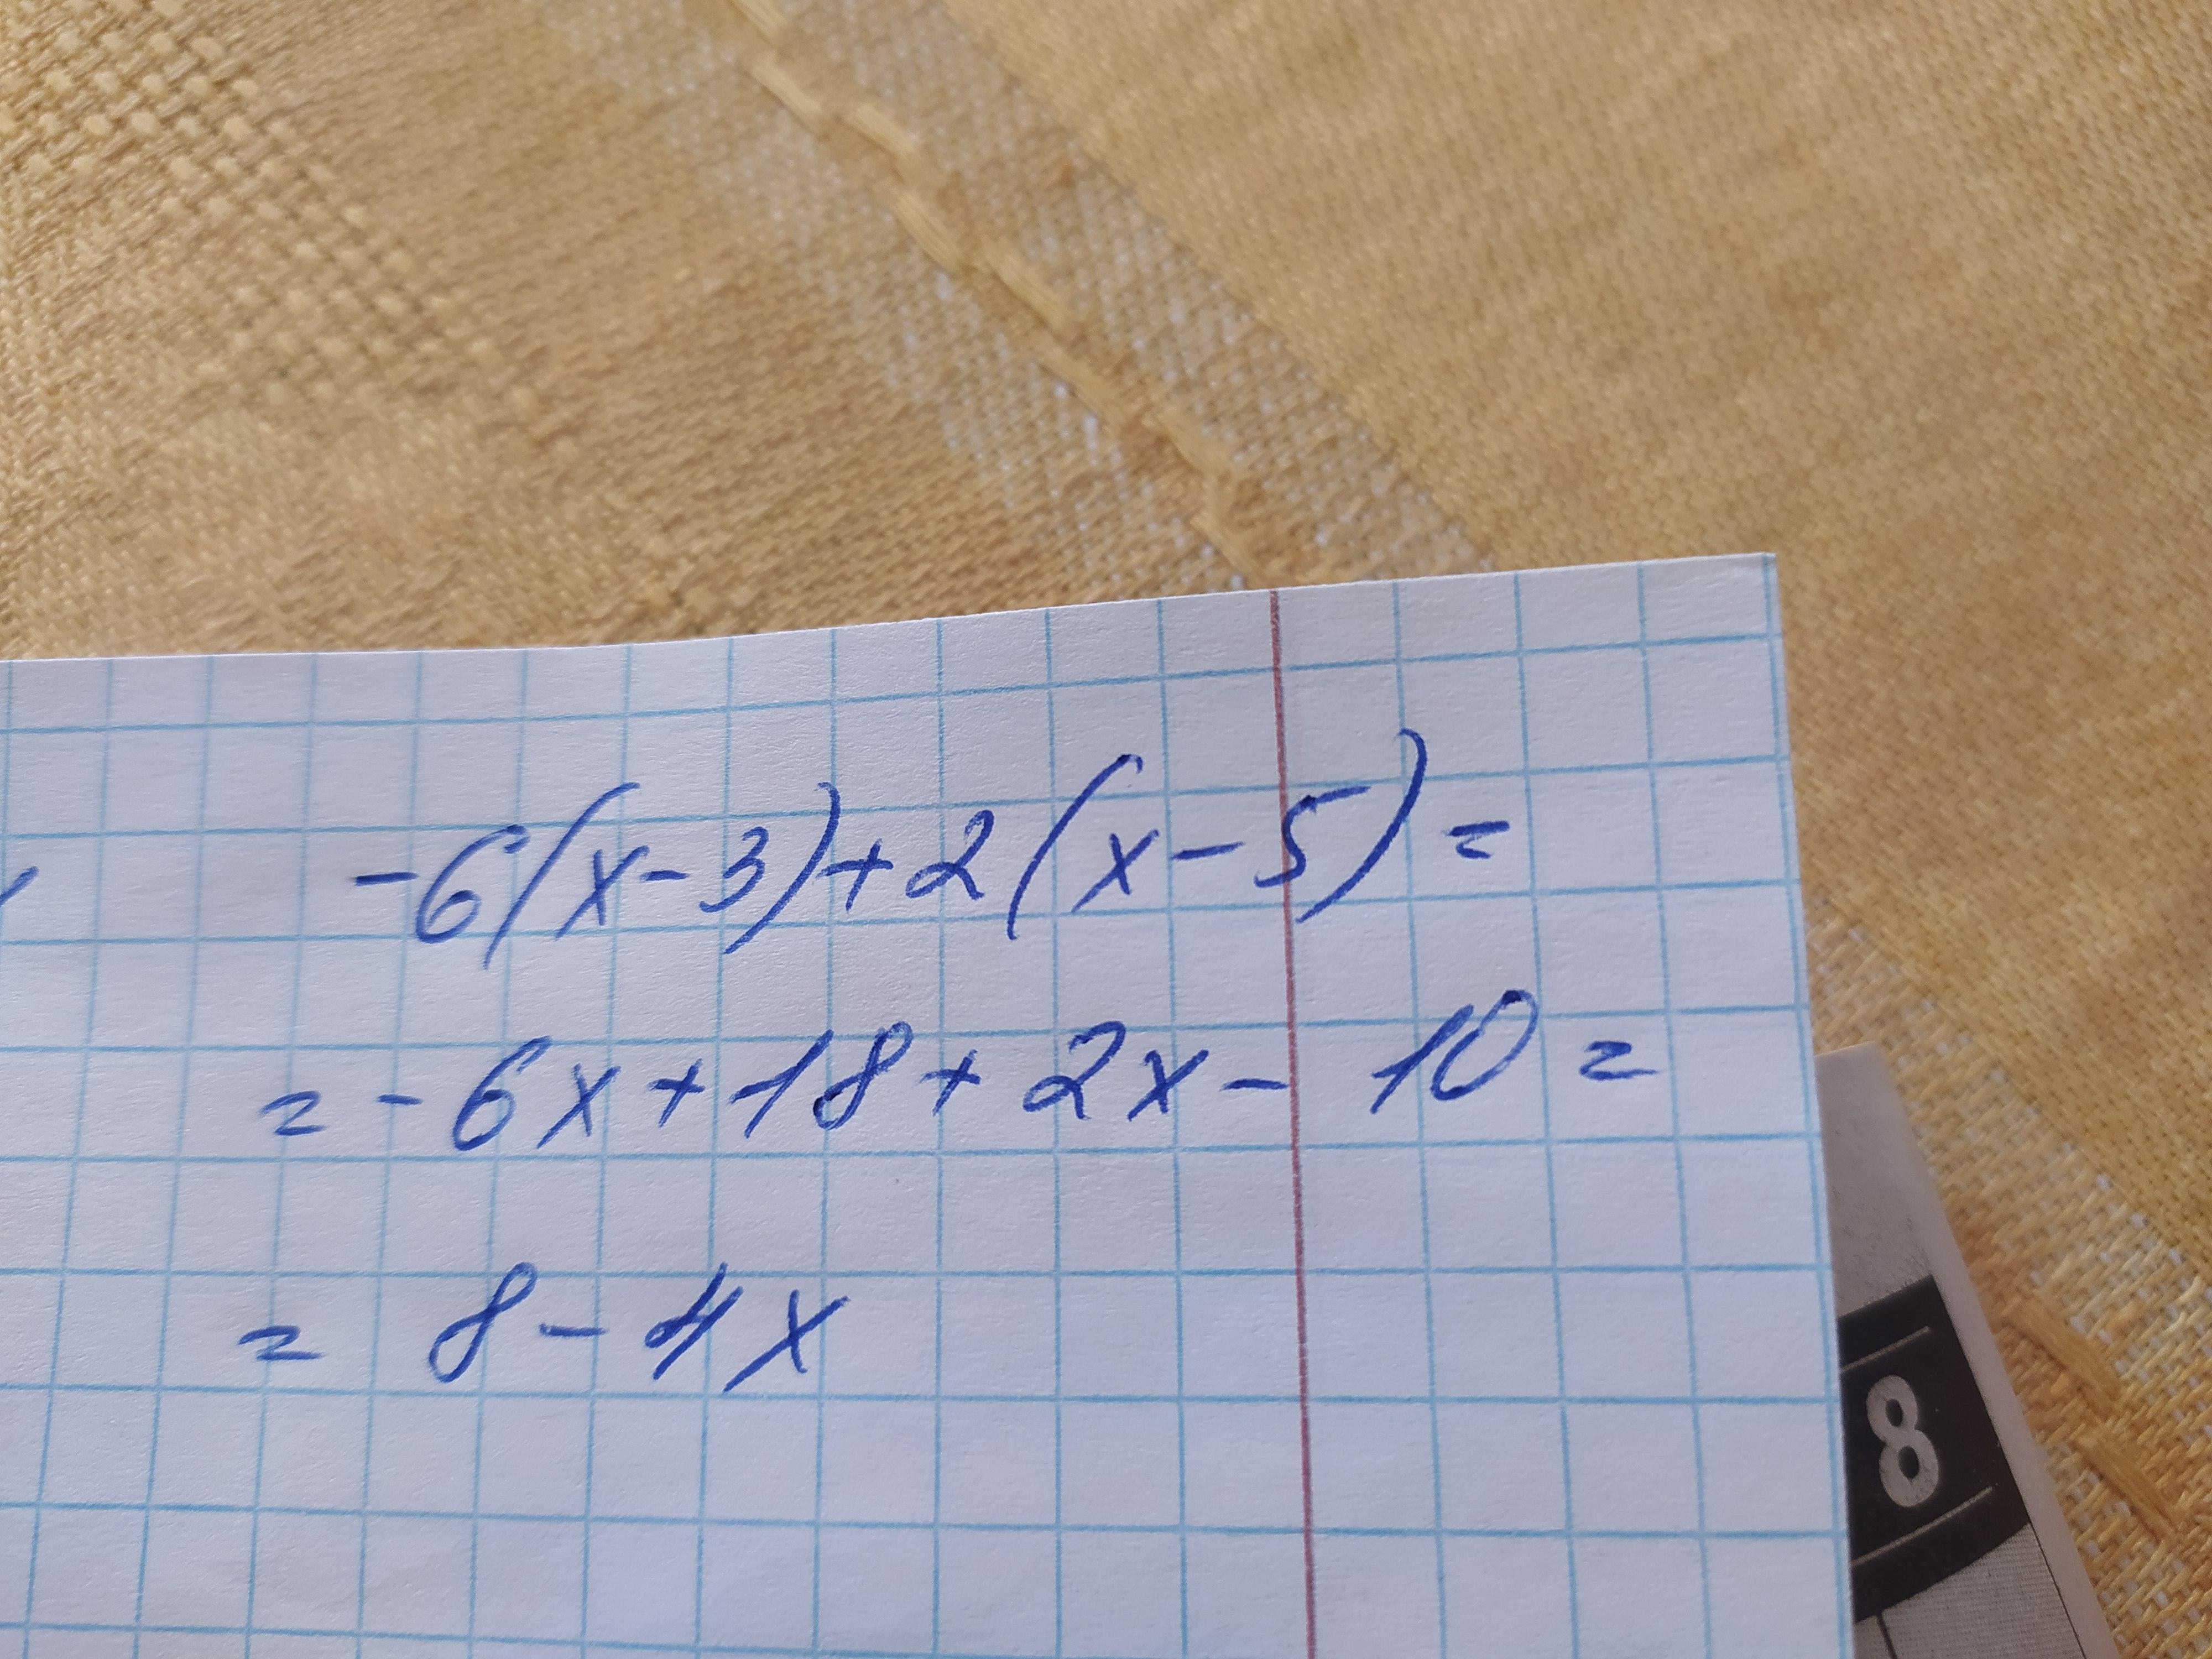 -6(x-3)+2(x-5)=
=-6x+18+2x-10=
=8-4x
8